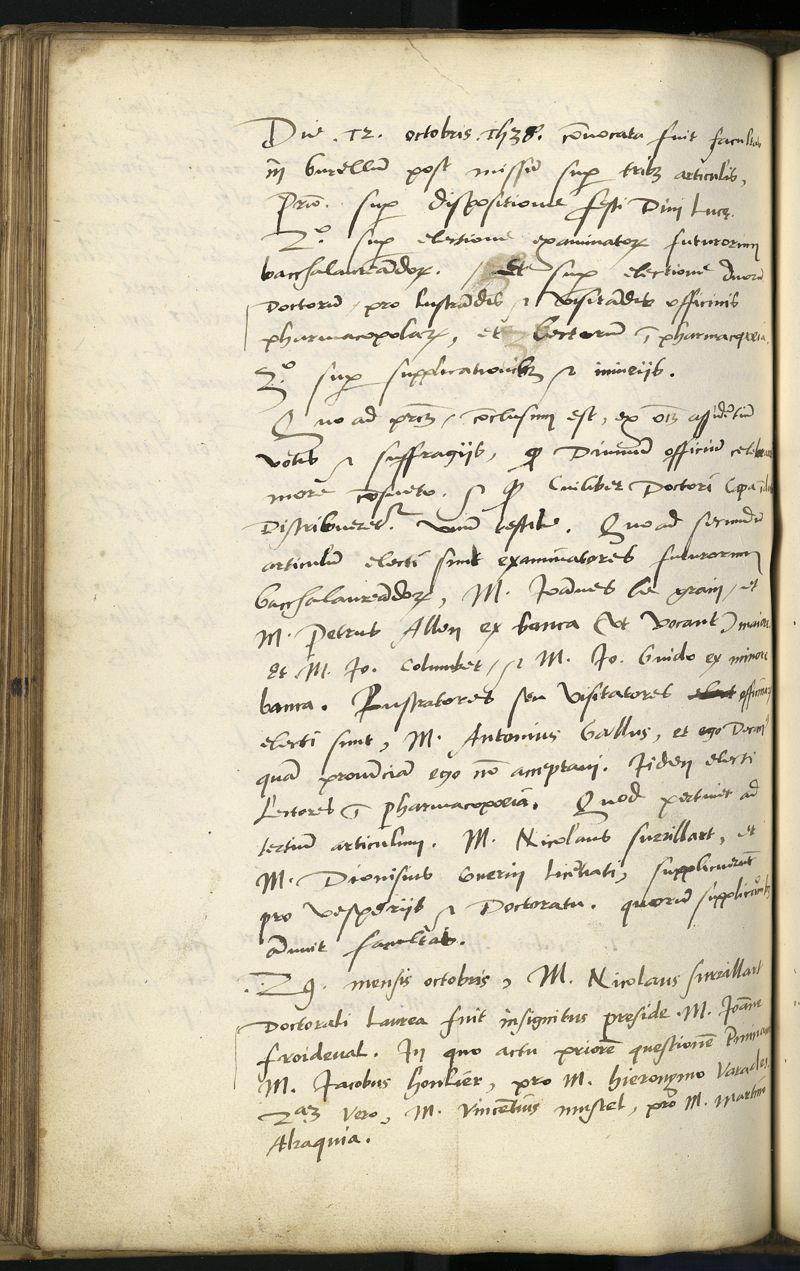 Die .12. octobris .1538. cōvocata fuit facultas
in burellum post missam sup tribus articulis,
Primo. sup dispositione festi Divi Lucę.
2.o sup electione examinatorꝝ futurorum
bacchalaureandorꝝ. Et sup electione duorū
Doctorum, pro lustrandis et visitandis officinis
pharmacopolarꝝ, et Lectorum ī pharmacopoeia.
3.o sup supplicationibus et iniuriis.
Quo ad primū, cōclusum est, ex oīm assidētium
votis et suffragiis, ꝙ Divinum officium
more cōsueto. et ꝙ Cuilibet Doctori
Distribueretr. Quo ad secundū
articulum electi sunt examinatores futurorum
bacchalaureandorꝝ, M. Joānnes le grain, et
M. Petrus Allen ex banca (ut vocant) maiore
et M. Jo. Columbet, et M. Jo. Guido ex minore
banca. Lustratores seu visitatores officinarum
electi sunt, M. Antonius Gallus, et ego Decanus
quam provīciam ego nō acceptavi. Iidem electi
Lectores ī pharmacopoeiā. Quod pertinet ad
tertium articulum. M. Nicolaus surrillart, et
M. Dionisius Guerin licētiati, supplicuerunt
pro vesperiis et Doctoratu. quorum supplicationibus
ānnuit facultas.
29. mensis octobris, M. Nicolaus surrillart
Doctorali Laurea fuit insignitus pręside M. Joāne
froideval. In quo actu priorē questionē
M. Jacobus houllier, pro M. hieronymo Varade.
2am vero, M. Vincētius mustel, pro M. Martino
Akaquia.